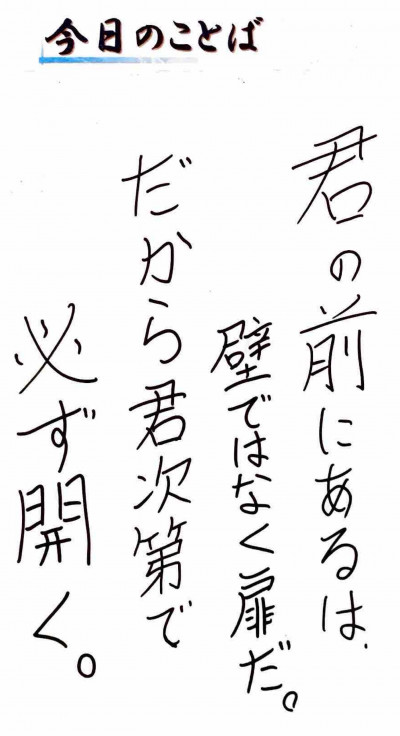 今日のことば
君の前にあるは、
壁ではなく扉だ。
だから君次第で
必ず開く。